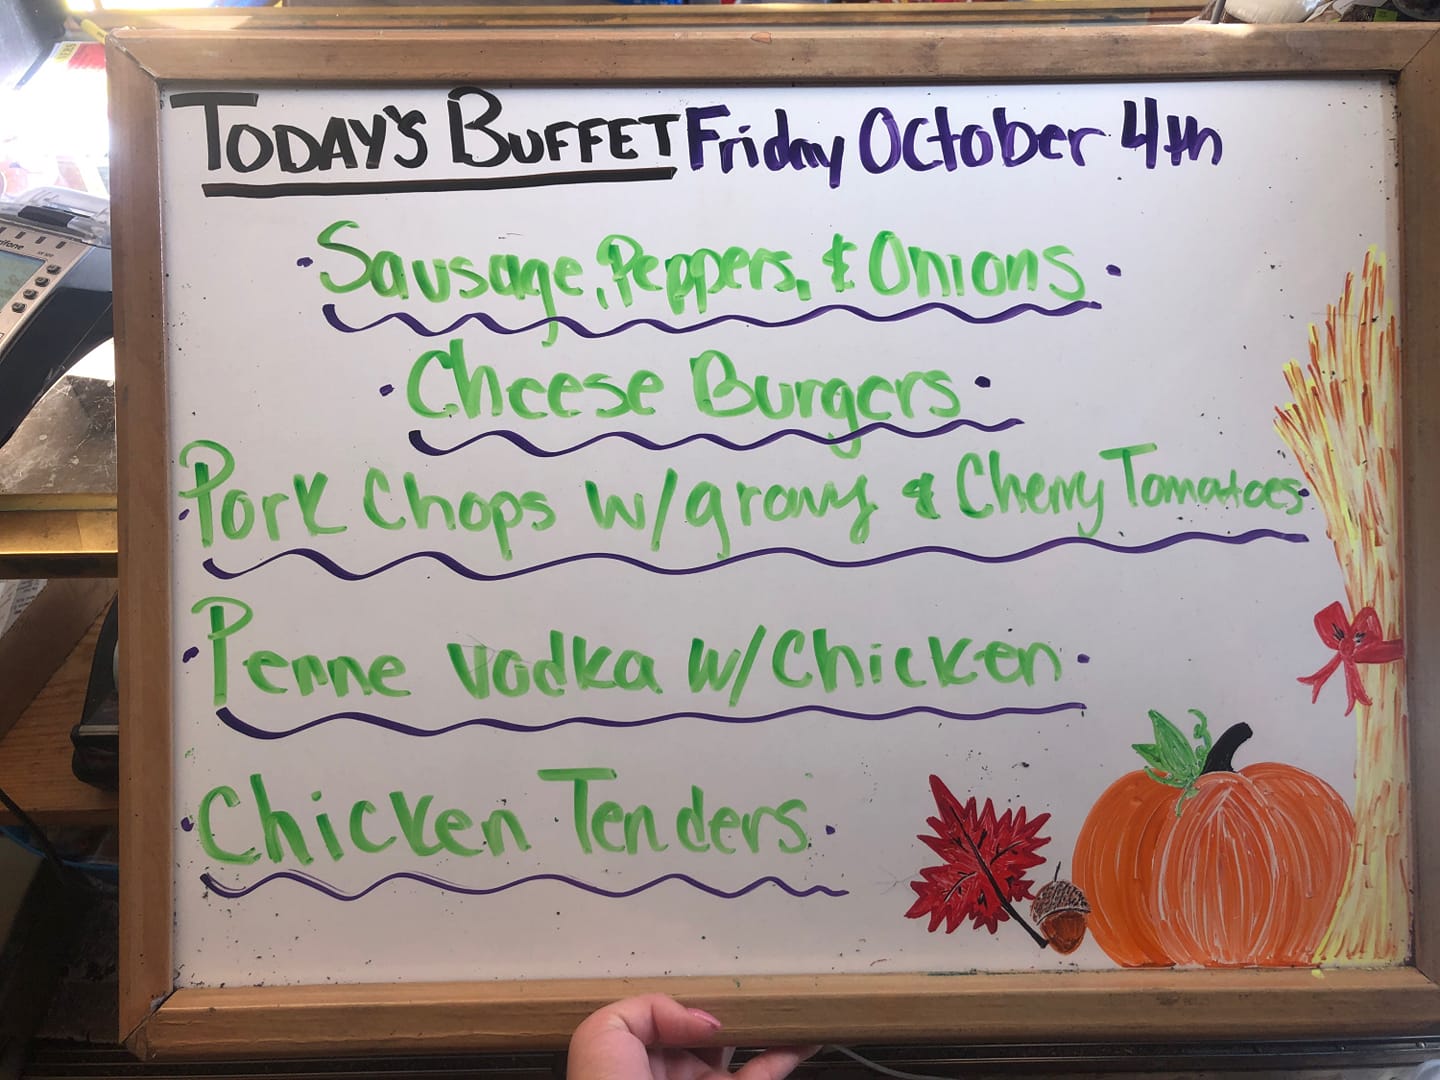 TODAY'S BUFFET Friday October 4th
Sausage, Peppers, & Onions
Cheese Burgers
Pork Chops w/gravy & Cherry Tomatoes
Penne Vodka w/Chicken
Chicken Tenders